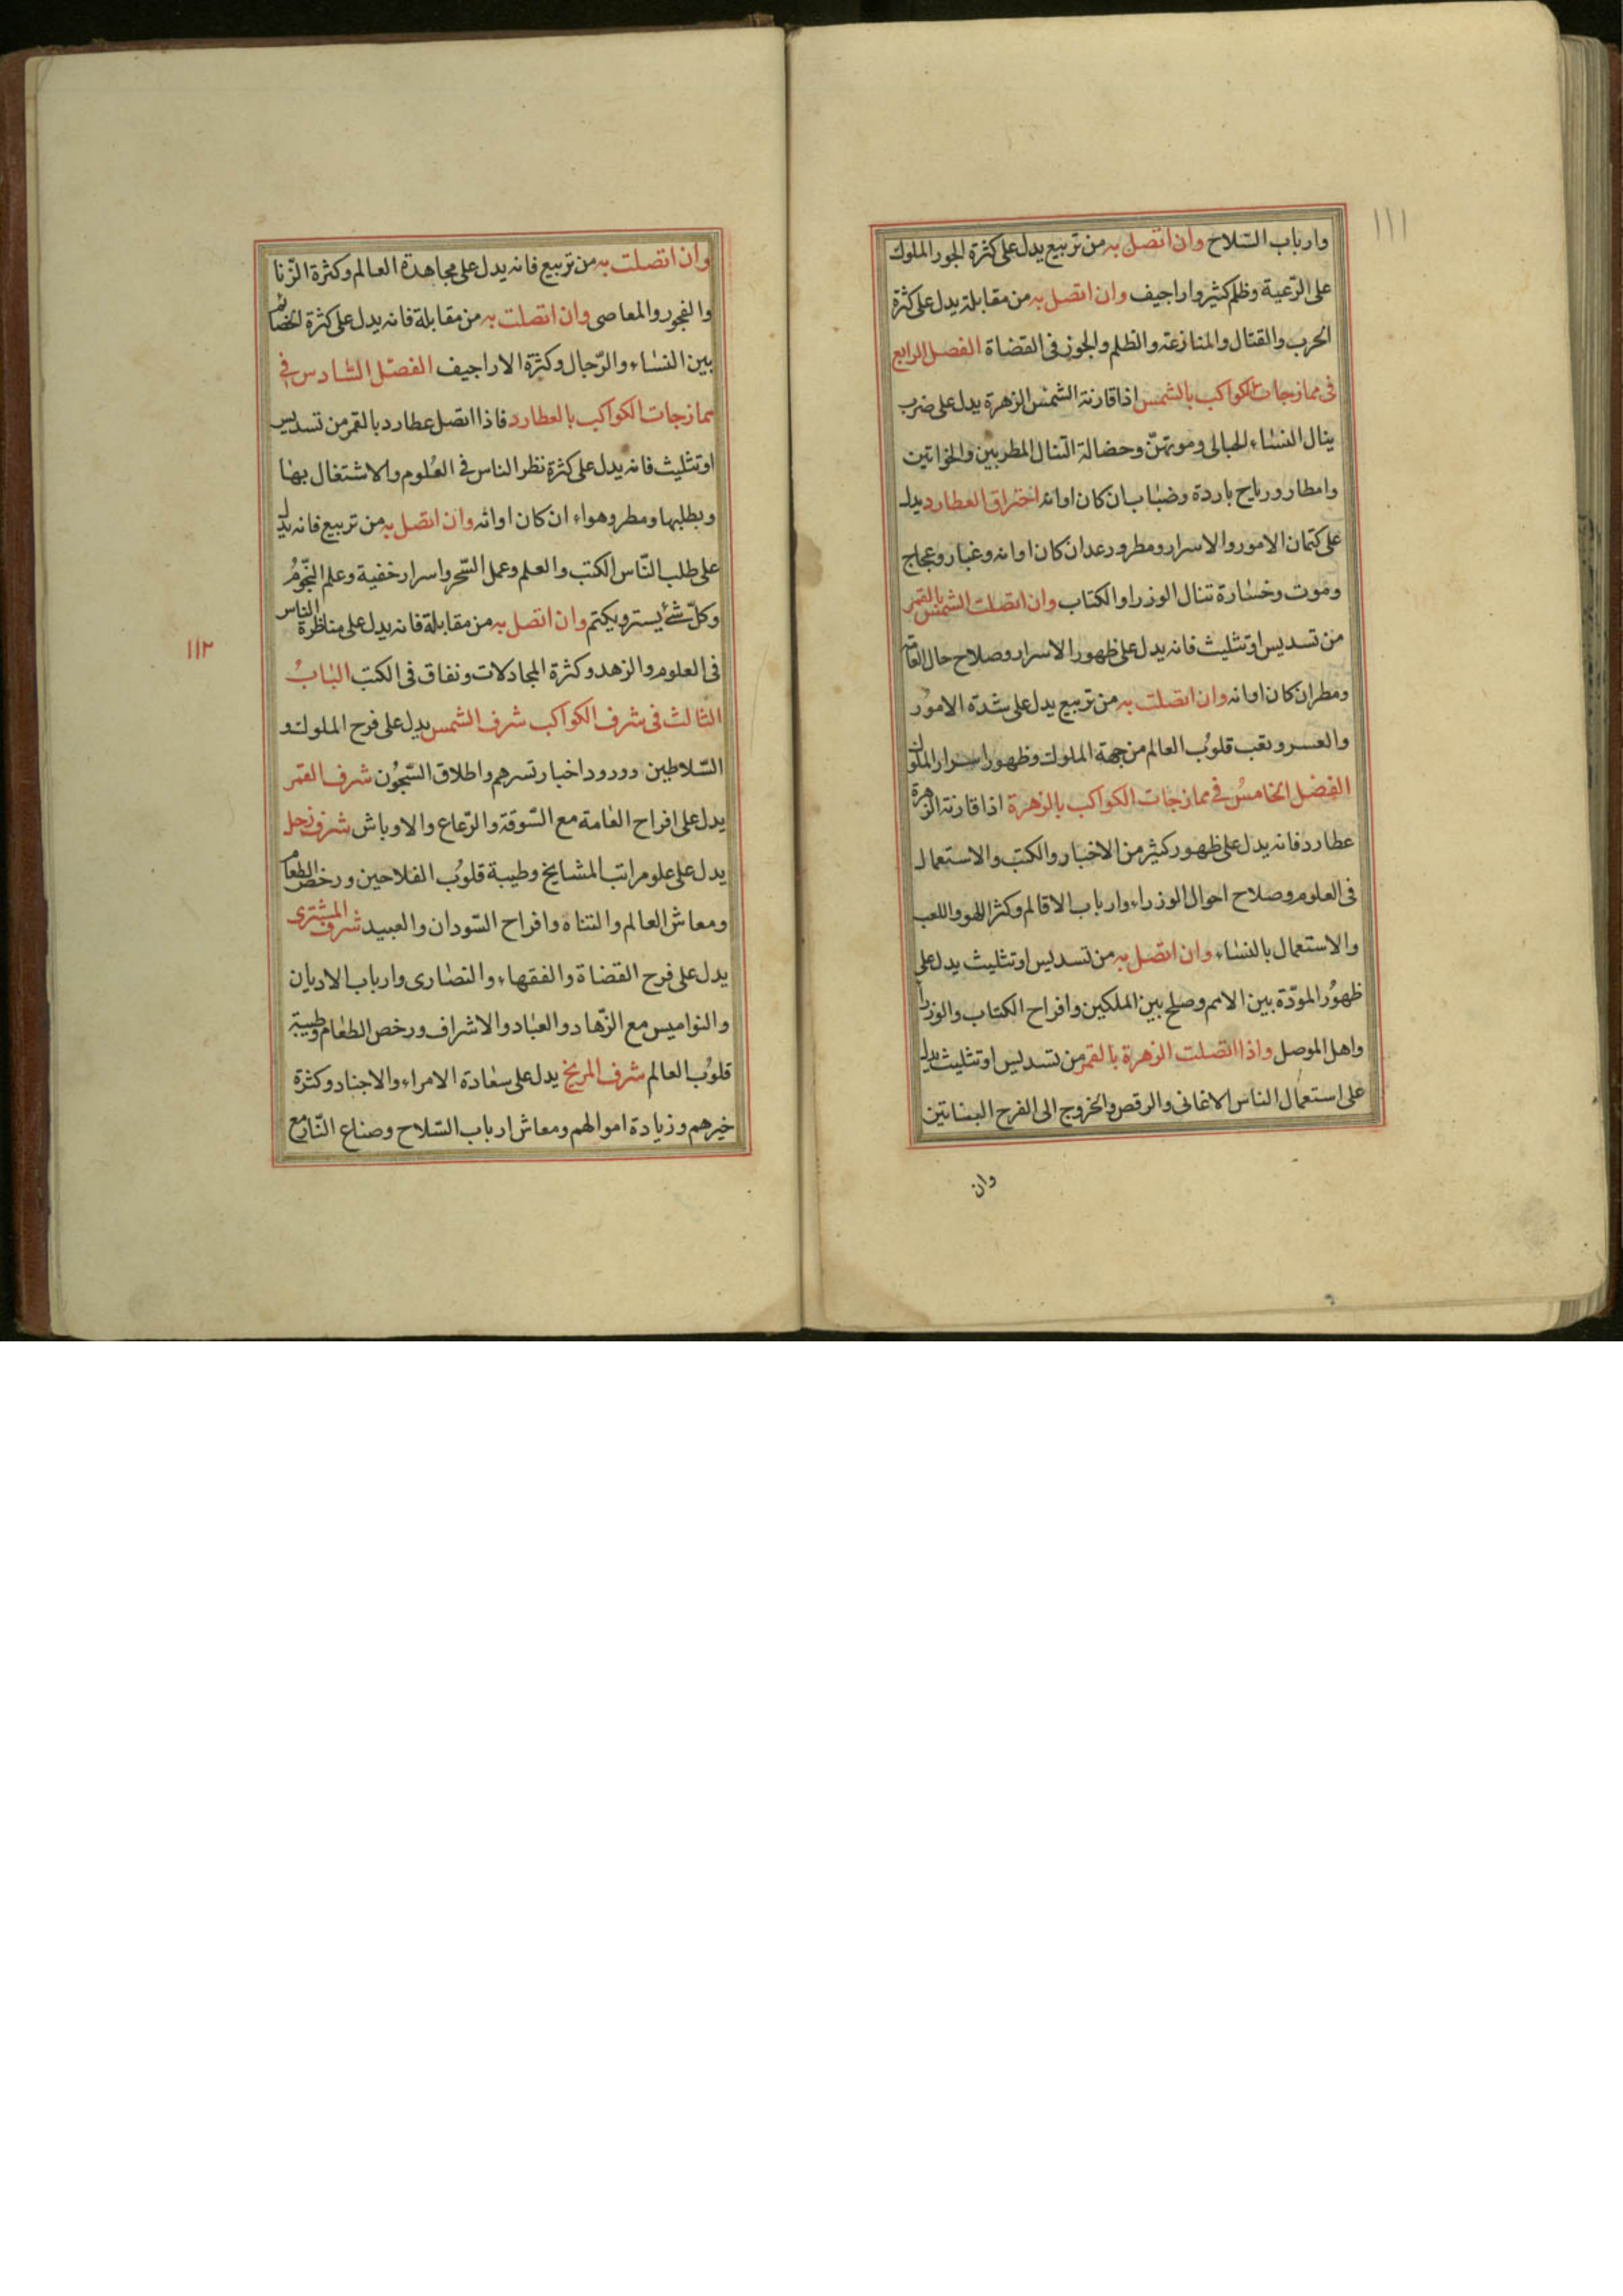 ١١١
وارباب السّلاح وان اتصل به من تربيع يدل على كثرة الجور الملوك
على الرّعية وظلم كثير واراجيف وان اتصل به من مقابلة يدل على كثرة
الحرب والقتال والمنازعة والظلم والجوز فى القضاة الفصل الرابع
فى ممازجات الكواكب بالشمس اذا قارنة الشمس الزهرة يدل على ضرب
ينال النساء الحبالى وموتهنّ وحضالة التنال المطربين والخواتين
وامطار ورياح باردة وضباب ان كان اوانه احتراق العطارد يدل
على كتمان الامور والاسرار ومطر ورعد ان كان اوانه وغبار وعجاج
وموت وخسارة تنال الوزرا والكتاب وان اتصلت الشمس بالقمر
من تسديس او تثليث فانه يدل على ظهور الاسرار وصلاح حال العامة
ومطر ان كان اوانه وان اتصلت به من تربيع يدل على شدة الامور
والعسر وتعب قلوب العالم من جهة الملوك وظهور اسرار الملوك
الفصل الخامس فى ممازجات الكواكب بالزهرة اذا قارنة الزهرة
عطارد فانه يدل على ظهور كثير من الاخبار والكتب والاستعمال
فى العلوم وصلاح احوال الوزراء وارباب الاقالم وكثر اللهو واللعب
والاستعمال بالنساء وان اتصل به من تسديس او تثليث يدل على
ظهور المودّة بين الامم وصلح بين الملكين وافراح الكتاب والوزرا
واهل الموصل واذا اتصلت الزهرة بالقمر من تسديس او تثليث يدل
على استعمال الناس الاغانى والرقص والخروج الى الفرح البساتين
وان
وان اتصلت به من تربيع فانه يدل على مجاهدة العالم وكثرة الزّنا
والفجور والمعاصى وان اتصلت به من مقابلة فانه يدل على كثرة الخصائم
بين النساء والرّجال وكثرة الاراجيف الفصل السّادس فى
ممازجات الكواكب بالعطارد فاذا اتصل عطارد بالقمر من تسديس
او تثليث فانه يدل على كثرة نظر الناس فى العلوم والاشتغال بها
وبطلبها ومطر وهواء ان كان اوانه وان اتصل به من تربيع فانه يدل
على طلب النّاس الكتب والعلم وعمل السّحر واسرار خفية وعلم النجّوم
وكلّ شئ يستر ويكتم وان اتصل به من مقابلة فانه يدل على مناظرة الناس
١١٢
فى العلوم والزهد وكثرة المجادلات ونفاق فى الكتب الباب
الثالث فى شرف الكواكب شرف الشمس يدل على فرح الملوك و
السّلاطين وورود اخبار تسرهم واطلاق السّجون شرف القمر
يدل على افراح العامة مع السّوقة والرّعاع والاوباش شرف زحل
يدل على علو مراتب المشايخ وطيبة قلوب الفلاحين ورخص الطعام
ومعاش العالم والتناه وافراح السّودان والعبيد شرف المشترى
يدل على فرح القضاة والفقهاء والنصارى وارباب الاديان
والنواميس مع الزّهاد والعبّاد والاشراف ورخص الطعام وطيبة
قلوب العالم شرف المريخ يدل على سعادة الامراء والاجناد وكثرة
خيرهم وزيادة اموالهم ومعاش ارباب السّلاح وصناع النّار مع